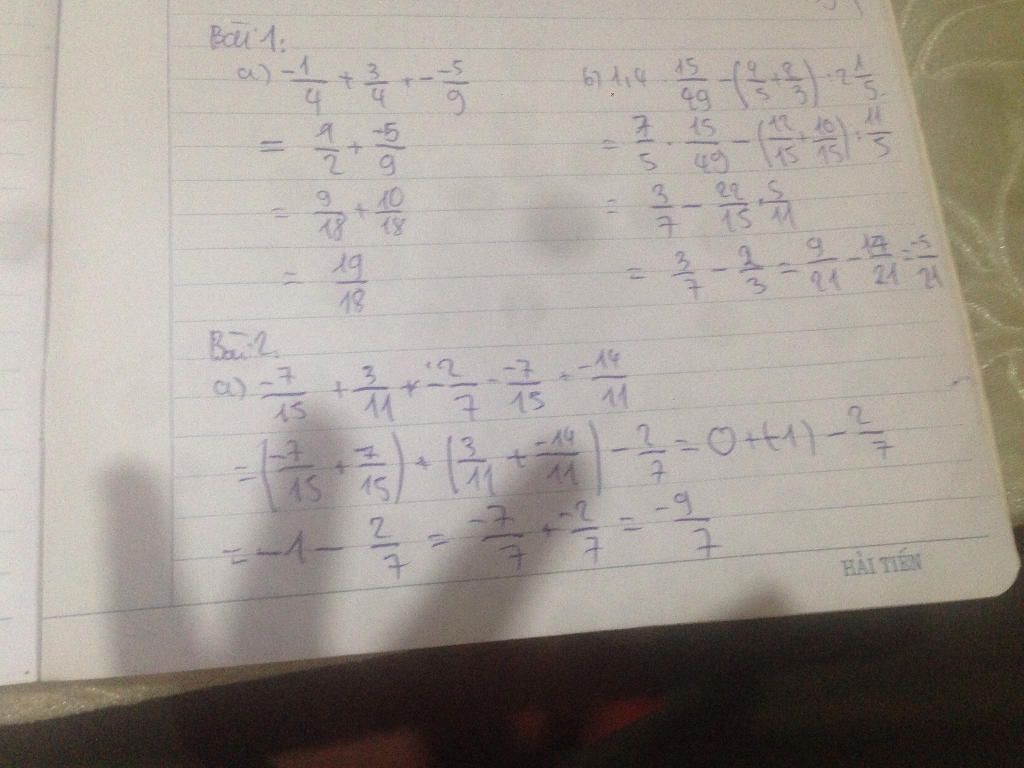 Bài 1:
a) -1/4 + 3/4 + - -5/9
= 1/2 + -5/9
= 9/18 + 10/18
= 19/18
b) 1,4 · 15/49 - (4/5 + 2/3) : 2 1/5
= 7/5 · 15/49 - (12/15 + 10/15) : 11/5
= 3/7 - 22/15 · 5/11
= 3/7 - 2/3 = 9/21 - 14/21 = -5/21
Bài 2.
a) -7/15 + 3/11 + -2/7 - -7/15 + -14/11
= (-7/15 + 7/15) + (3/11 + -14/11) - 2/7 = 0 + (-1) - 2/7
= -1 - 2/7 = -7/7 + -2/7 = -9/7
HẢI TIẾN